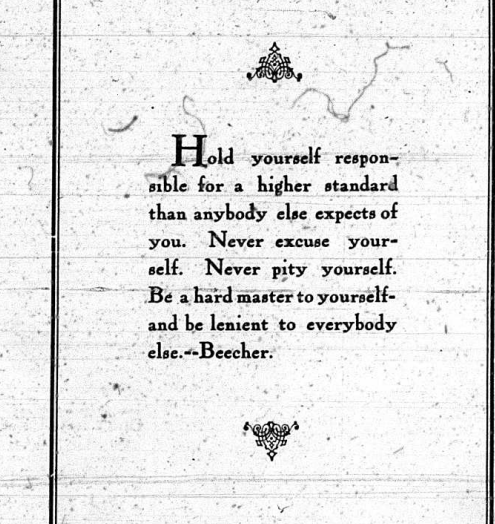 Hold yourself respon-
sible for a higher standard
than anybody else expects of
you. Never excuse your-
self. Never pity yourself.
Be a hard master to yourself-
and be lenient to everybody
else.--Beecher.